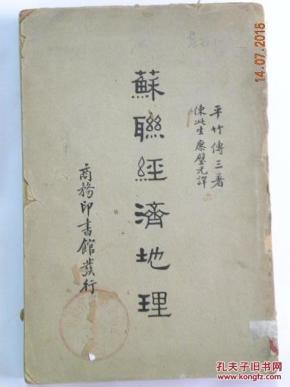 14.07.2016
平竹傳三著
陳此生 廖璧光譯
蘇聯經濟地理
商務印書館發行
孔夫子旧书网